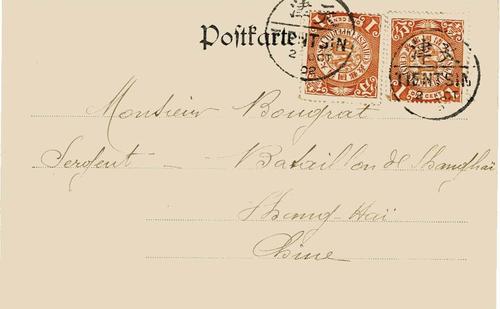 Postkarte
津
TIENTSIN
2 OCT
02
津
TIENTSIN
2 OCT
1
1
Monsieur Bougrat
Sergent - Bataillon de Shanghaï
Shang-Haï
Chine